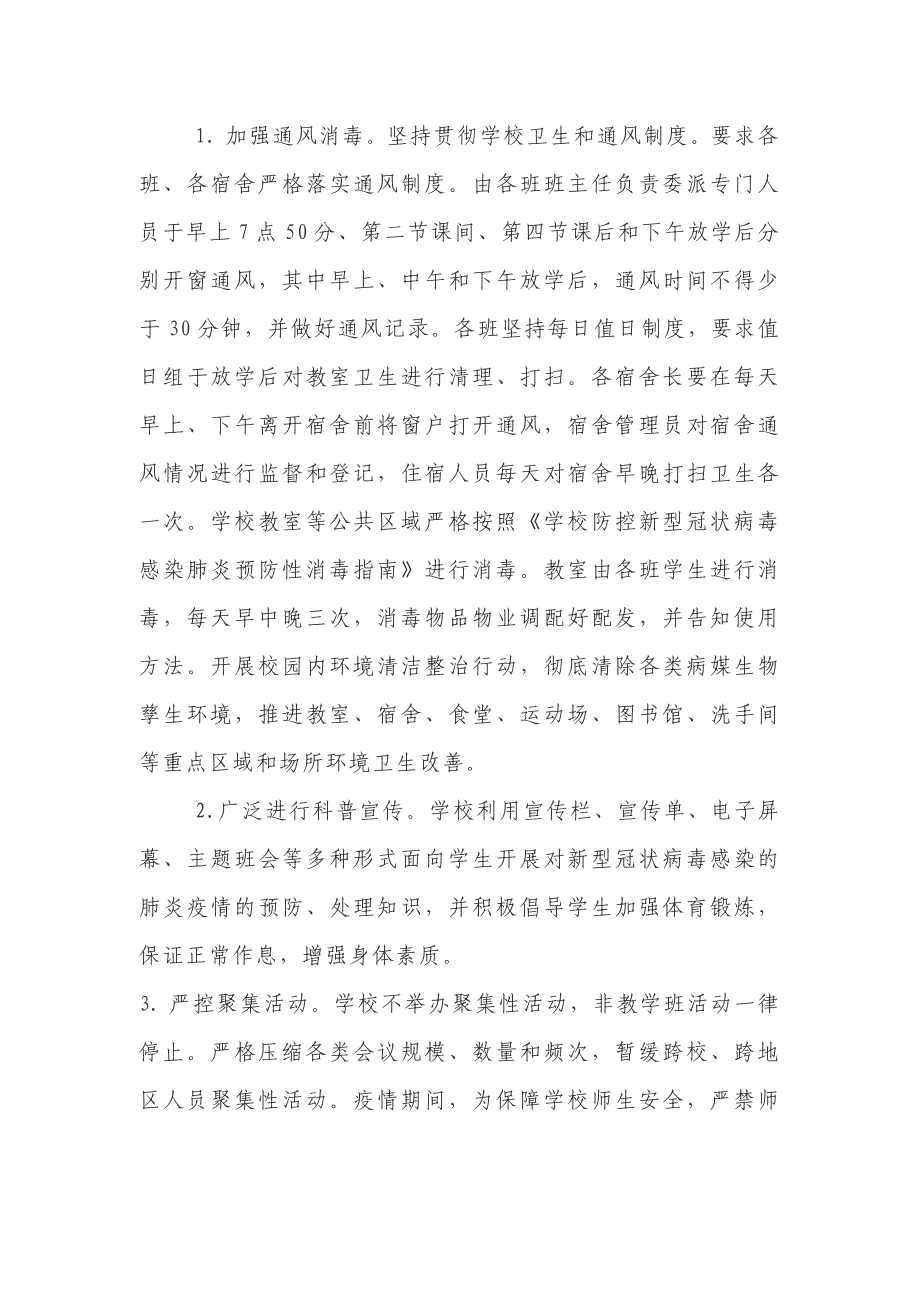 1. 加强通风消毒。坚持贯彻学校卫生和通风制度。要求各
班、各宿舍严格落实通风制度。由各班班主任负责委派专门人
员于早上 7 点 50 分、第二节课间、第四节课后和下午放学后分
别开窗通风，其中早上、中午和下午放学后，通风时间不得少
于 30 分钟，并做好通风记录。各班坚持每日值日制度，要求值
日组于放学后对教室卫生进行清理、打扫。各宿舍长要在每天
早上、下午离开宿舍前将窗户打开通风，宿舍管理员对宿舍通
风情况进行监督和登记，住宿人员每天对宿舍早晚打扫卫生各
一次。学校教室等公共区域严格按照《学校防控新型冠状病毒
感染肺炎预防性消毒指南》进行消毒。教室由各班学生进行消
毒，每天早中晚三次，消毒物品物业调配好配发，并告知使用
方法。开展校园内环境清洁整治行动，彻底清除各类病媒生物
孳生环境，推进教室、宿舍、食堂、运动场、图书馆、洗手间
等重点区域和场所环境卫生改善。
2. 广泛进行科普宣传。学校利用宣传栏、宣传单、电子屏
幕、主题班会等多种形式面向学生开展对新型冠状病毒感染的
肺炎疫情的预防、处理知识，并积极倡导学生加强体育锻炼，
保证正常作息，增强身体素质。
3. 严控聚集活动。学校不举办聚集性活动，非教学班活动一律
停止。严格压缩各类会议规模、数量和频次，暂缓跨校、跨地
区人员聚集性活动。疫情期间，为保障学校师生安全，严禁师